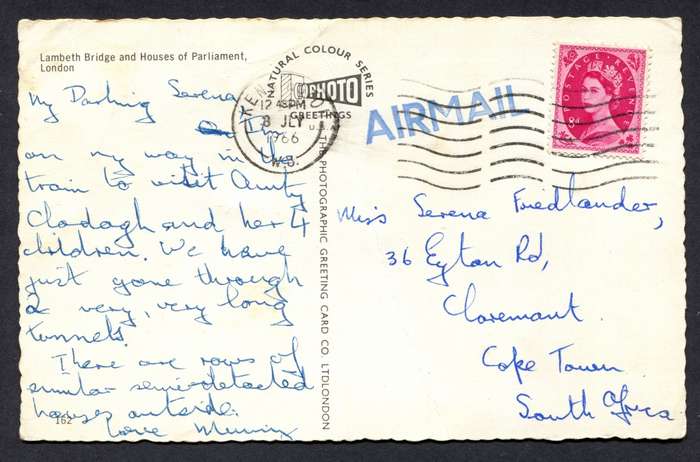 Lambeth Bridge and Houses of Parliament,
London
My Darling Serena
I'm
on my way in the
train to visit Aunty
Clodagh and her 4
children. We have
just gone through
2 very, very long
tunnels.
There are rows of
similar semi-detached
houses outside.
Love Mummy
162
NATURAL COLOUR SERIES
PHOTO
GREETINGS
THE PHOTOGRAPHIC GREETING CARD CO. LTD LONDON
12 45 PM
8 JLY
1966
W.8.
AIRMAIL
POSTAGE REVENUE
8d
Miss Serena Friedlander,
36 Eyton Rd,
Claremont
Cape Town
South Africa